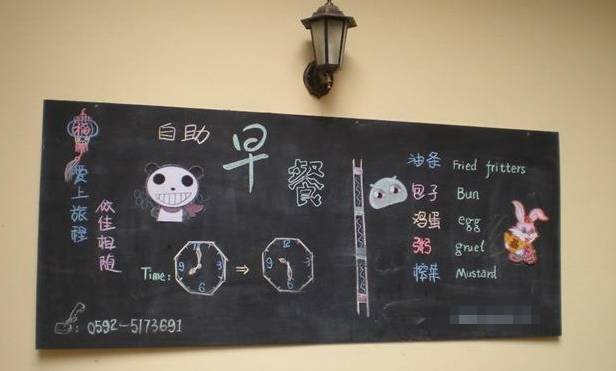 福
爱上旅程
依佳相随
自助
早
餐
Time: ⇒
12
9
3
6
12
9
3
6
: 0592-5173691
油条 Fried fritters
包子 Bun
鸡蛋 egg
粥 gruel
榨菜 Mustard